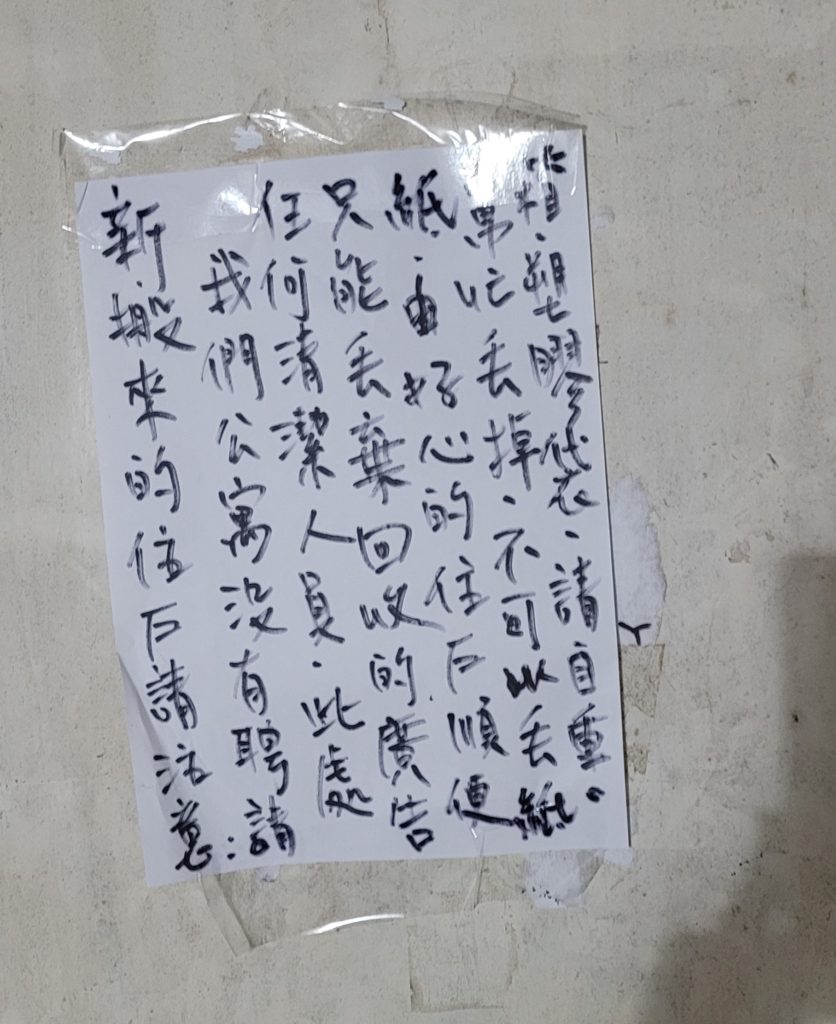 新搬來的住戶請注意：
我們公寓沒有聘請
任何清潔人員、此處
只能丟棄回收的廣告
紙、由好心的住戶順便
幫忙丟掉、不可以丟紙
箱、塑膠袋、請自重。